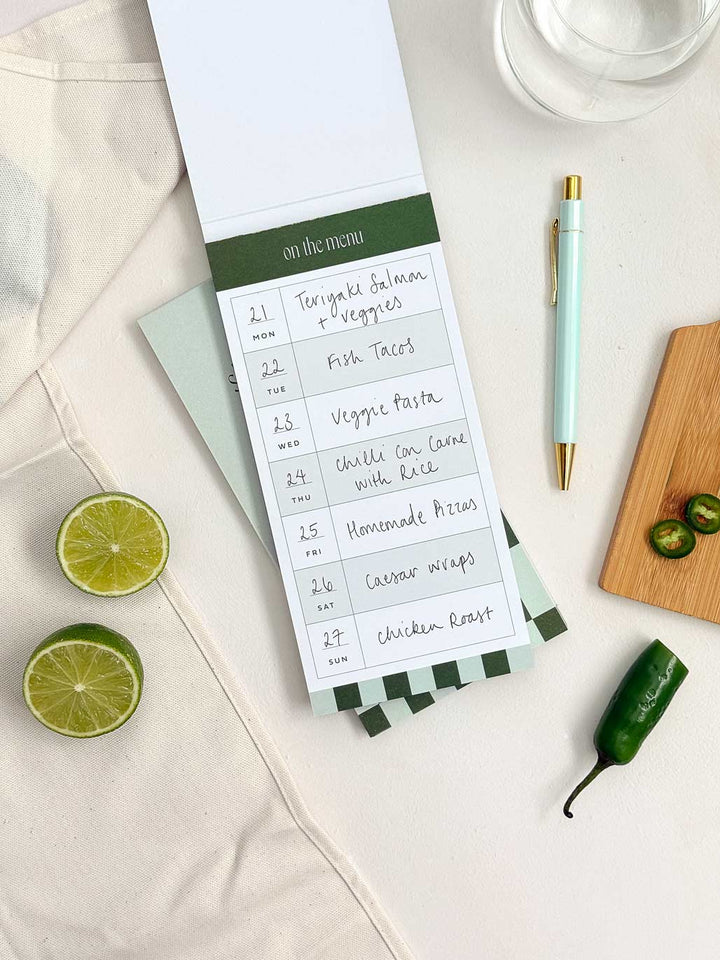 on the menu
21 Teriyaki Salmon
MON + veggies
22 Fish Tacos
TUE
23 Veggie Pasta
WED
24 Chilli Con Carne
THU with Rice
25 Homemade Pizzas
FRI
26 Caesar wraps
SAT
27 Chicken Roast
SUN